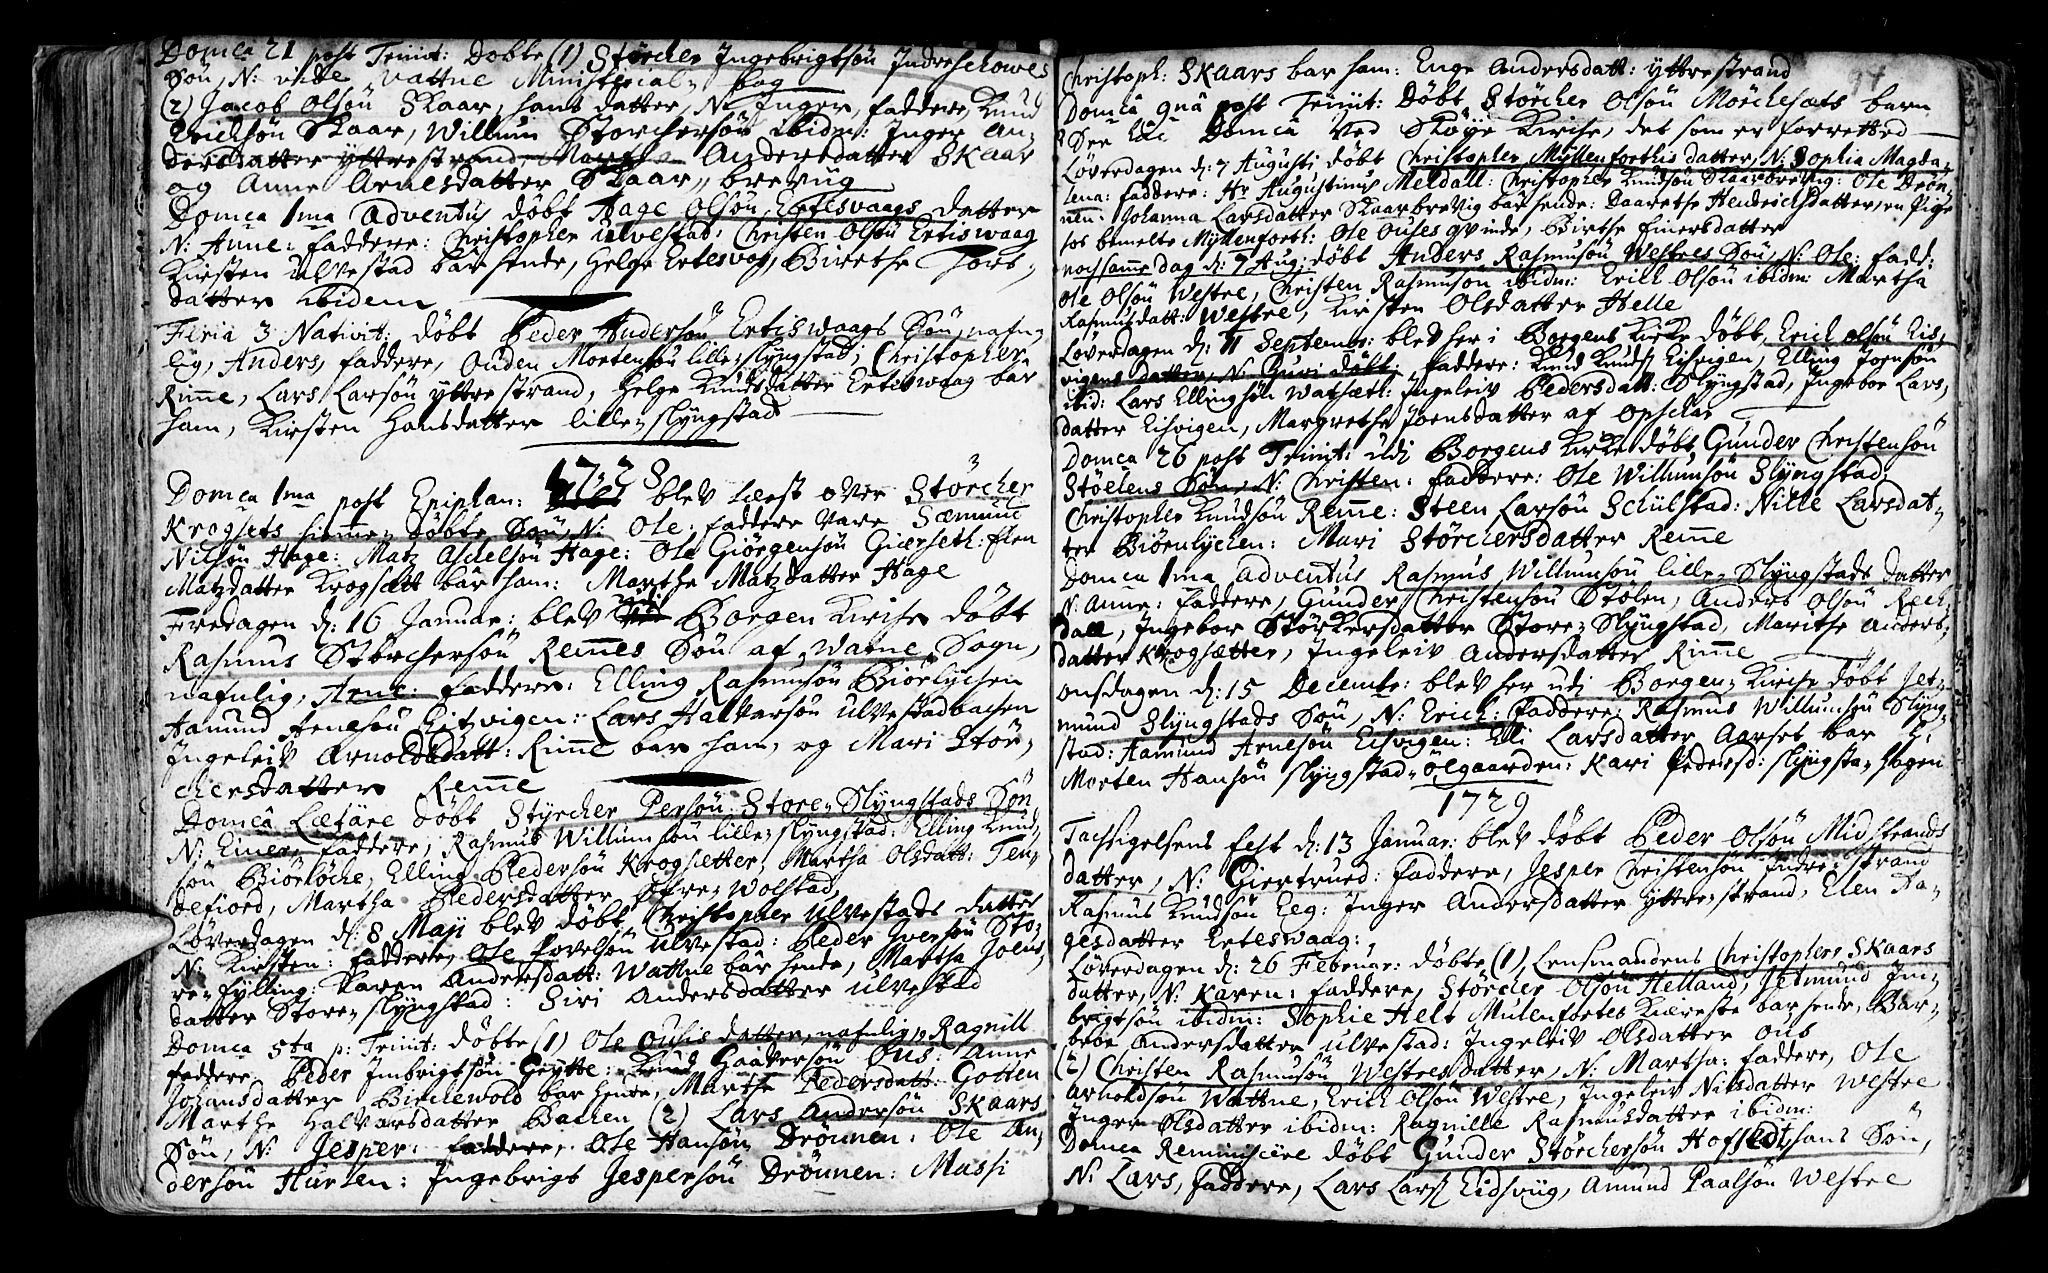 Domca 21 post Trinit: Döbte (1) Störcher Ingebrigtsön Indreschowes
Sön, N: vide Vattne Ministerial= bog
(2) Jacob Olsön Skaar, hans datter, N: Inger, faddere, Knud
Erichsön Skaar, Willum Storchersön ibidm: Inger An-
dersdatter yttrestrand, Martha Andersdatter Skaar
og Anne Arnesdatter Skaar= brevüg
Domca 1ma Adventus döbt Hage Olsön Ertesvaags datter
N: Anne: faddere: Christopher ulvestad: Christen Olsön Ertiswaag
Kirsten ulvestad bar hende, Helge Ertesvog, Birethe Tors=
datter ibidem
Feria 3 Nativit: döbt Peder Andersön Ertiswaags Sön, nafn=
lig, Anders, faddere, Ouden Mortensön lille=slÿngstad; Christopher
Rime, Lars Larsön yttrestrand, Helge Knudsdatter Ertiswaag bar
ham, Kirsten Hansdatter lille=slÿngstad
1728
Domca 1ma post Epiphan: blev læst over Störcher
Krogsets hiemme=döbte Sön, N: Ole: faddere vare Sæmund
Nilsön Hage: Matz Aschelsön Hage: Ole Giörgensön Gierseth: Elen
Matzdatter Krogsætt bar ham: Marthe Matzdatter Hage
Fredagen d: 16 Januar: blev udi Borgen Kirche döbt
Rasmus Störchersön Remes Sön af Vatne Sogn,
nafnlig, Arne: faddere: Elling Rasmusön Biörlÿchen
Hamund Arnesön Eitzvigen: Lars Halvarsön ulvestadbachen
Ingeleiv Arnoldsdatt: Rime bar ham, og Mari Stör=
chersdatter Reme
Domca Lætare döbt Styrcher Persön Store=Slÿngstads Sön
N: Einer, faddere, Rasmus Willumsön lille=slÿngstad: Elling Knud=
sön Biörlöche, Elling Pedersön Krogsetter, Martha Olsdatt: Ten=
defiord, Martha Pedersdatter öfre=Wolstad
Löverdagen d: 8 Maji blev döbt Christopher Ulvestads datter
N: Kirsten: faddere, Ole Povelsön ulvestad: Peder Iversön Sto=
re=fÿlling: Karen Andersdatt: Wattne bar hende, Martha Joens=
datter Store=slÿngstad: Siri Andersdatter ulvestad
Domca 5ta p: Trinit: döbte (1) Ole Ousis datter, nafnlig, Ragnill
faddere Peder Imbrigtsön Grÿtte: Knud Gaaversön Ous: Anne
Johansdatter Birchewold bar hende, Marthe Pedersdatt: Gotten
Marthe Halvorsdatter Bachen (2) Lars Andersön Skaars
Sön, N: Jesper: faddere, Ole Hansön Drönnen: Ole An=
dersön Hurlen: Ingebrigt Jespersön Drönnen: Massi
Christoph: Skaars bar ham: Enge Andersdatt: yttrestrand
97
Domca qnâ post Trinit: Döbt Störcher Olsön Mörchesæts barn
Domca ved Sköÿe Kirche, det som er forretted
Löverdagen d: 7 Augusti döbt Christopher Myllenforthis datter, N: Sophia Magda=
lena: faddere: Hr Augustinus Meldall: Christopher Knudsön Skaarbrevig: Ole Drön=
nen: Johanna Larsdatter Skaarbrevig bar hende: Daarethe Henderichsdatter, en Pige
hos bemelte Myllenforth: Ole Ouses qvinde, Birthe Einersdatter
noch samme dag d: 7 Aug: döbt Anders Rasmusön Westres Sön, N: Ole: fadd:
Ole Olsön Westre, Christen Rasmusön ibidm: Erich Olsön ibidm: Martha
Rasmusdatt: Westre, Kirsten Olsdatter Helle
Löverdagen d: 11 Septemb: blev her i Borgens Kirke döbt, Erich Olsön Eids=
vigens datter, N: Guri döbt, faddere: Knud Knuds: Eisvigen, Elling Joensön
ibid: Lars Ellingsön Watsæt: Ingeleiv Pedersdatt: Slÿngstad, Ingebor Lars=
datter Eisvigen, Margrethe Joensdatter af Opschar
Domca 26 post Trinit: udj Borgens Kirke döbt Gunder Christensön
Stöelens Sön, N: Christen: faddere: Ole Willumsön Slÿngstad,
Christopher Knudsön Reme: Steen Larsön Schülstad: Nille Larsdat=
ter Biörnlychen: Mari Störchersdatter Reme
Domca 1ma Adventus Rasmus Willumsön lille=Slÿngstads datter
N: Anne: faddere, Gunder Christensön Stölen, Anders Olsön Rech=
dall, Ingebor Störkersdatter Store=Slÿngstad, Marithe Anders=
datter Krogsætter, Ingeleiv Andersdatter Rime
onsdagen d: 15 Decembr: blev her udj Borgen=Kirche döbt Jet=
mund Slÿngstads Sön, N: Erich: faddere: Rasmus Willumsön Slÿng=
stad: Hamund Arnesön Eisvigen: Eli Larsdatter Aarset bar h:
Morten Hansön slÿngstad=ölgaarden: Kari Pedersd: slÿngsta=hagen
1729
Tachsigelsens fest d: 13 Januar: blev döbt Peder Olsön Midstrands
datter, N: Giertrued: faddere, Jesper Christensön Indre=strand
Rasmus Knudsön Eeg: Inger Andersdatter yttre=strand, Elen Ha=
gesdatter Erteswaag:
Löverdagen d: 26 Februar: döbte (1) Lensmandens Christophers Skaars
datter, N: Karen: faddere, Störcher Olsön Helland, Jetmund Im=
brigtsön ibidm: Sophie Helt Mulenfortes Kiereste bar hende, Bar=
broe Andersdatter ulvestad: Ingeleiv Olsdatter Ous
(2) Christen Rasmusön Westres datter, N: Martha: faddere, Ole
Arnoldsön Wattne, Erich Olsön Westre, Ingeleiv Nilsdatter Westre
Inger Olsdatter ibidm: Ragnille Rasmusdatter ibidm:
Domca Reminiscere döbt Gunder Störchersön Hofstedt, hans Sön,
N: Lars, faddere, Lars Lars: Eidsvüg, Amund Paalsön Westre